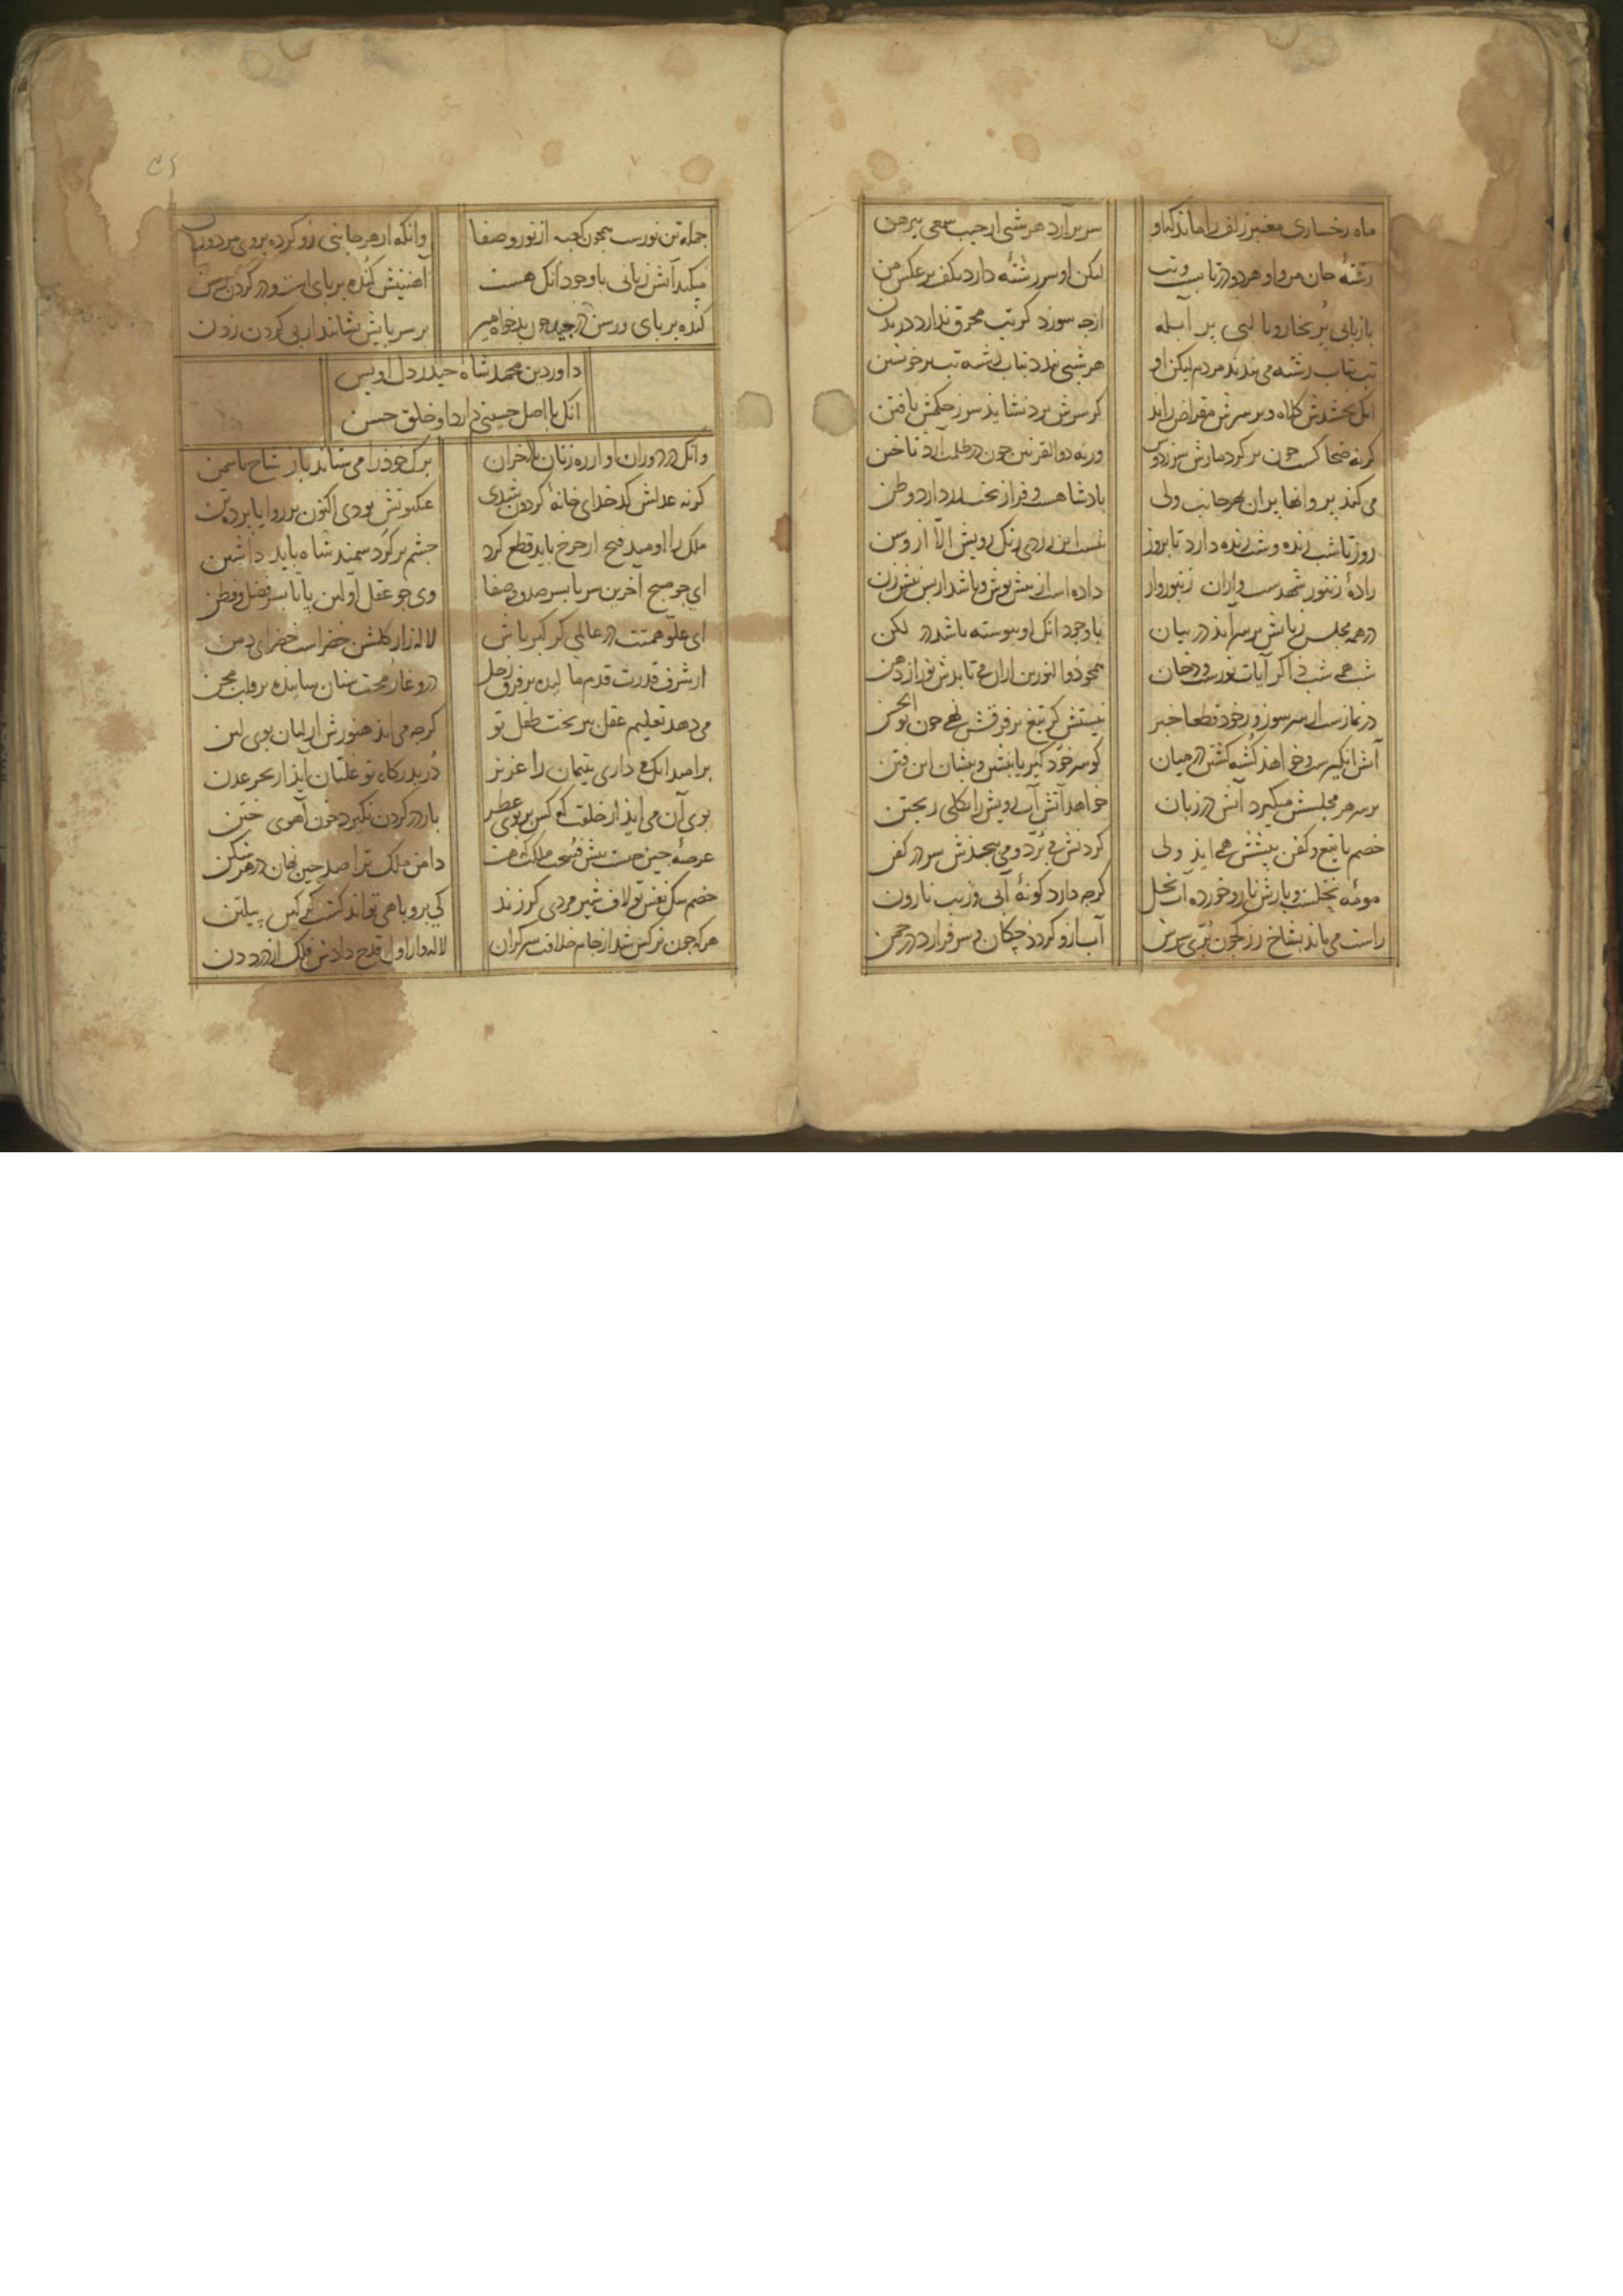 ماه رخساری معنبر زلف را ماند که او
سر برآرد هر شبی از جیب سعی پیرهن
رشتهٔ جان من و او هر دو در تابست و تب
لیکن او سررشته دارد بکف بر عکس من
با زبانی پر بخار و با لبی پر آبله
ازچه سوزد کر تب محرق ندارد در بدن
تب بتاب رشته می بندند مردم لیکن او
هر شبی بندد بتاب رشته تب بر خویشتن
انک بخشدش کلاه و بر سرش مقراض راند
کر سرش برد نشاید سر ز حکمش یافتن
کرنه ضحاکست چون بر کرد مارش سر ز دوش
ورنه ذوالقرنین چون در ظلمت آرد تاختن
می کند پروانها پران بهر جانب ولی
بادشاهست و فراز تخت دارد وطن
روز تا شب زنده و شب زنده دارد تا بروز
نیست این زردی رنک رویش الا از وسن
زادهٔ زنبور شهدست و ازان زنبوروار
داده است از پیش نوش و باشد از پس نیش زن
در همه مجلس زبانش بر سر آید در بیان
با وجود انک او پیوسته باشد در لکن
شب همه شب ذاکر آیات نورست و دخان
همچو ذوالنورین ازان می تابدش نور از دهن
در نمازست از سر سوز و ز خود قطعا خبر
نیستش کر تیغ بر فرقش نهی چون بوالحسن
آتش انکیزست و خواهد کشته کشتن در میان
کو سر خود کیر یا بنشین و بنشان این فتن
بر سر هر مجلسش میکیرد آتش در زبان
خواهد آتش آب رویش را بکلی ریختن
خصم با تیغ و کفن پیشش همی آید ولی
کردنش می برد و می پیچدش سر در کفن
مومه نخلست و بارش نار و خورده آب نخل
کرچه دارد کونهٔ آبی و زیب نارون
راست می ماند بشاخ رز که چون بری سرش
آب ازو کردد چکان و سر فرازد در چمن
جمله تن نورست همچون کعبه از نور و صفا
وانکه از هر جانبی رو کرده بروی مرد و زن
میکند آتش زبانی با وجود انک هست
آهنینش کنده بر پای است و در کردن رسن
کنده بر پای و رسن در جید چون بدخواه میر
بر سر پایش نشانند از پی کردن زدن
داور دین محمد شاه حیدر دل اویس
انک با اصل حسینی دارد او خلق حسن
وانک در دوران او از رهزنان باد خزان
برک خود را می ستاند باز شاخ یاسمن
کرنه عدلش کدخدای خانهٔ کردون شدی
عنکبوتش بودی اکنون بر زوایا پرده تن
ملک را اومید فتح از چرخ باید قطع کرد
چشم بر کرد سمند شاه باید داشتن
ای چو صبح آخرین سر تا بسر صدق و صفا
وی چو عقل اولین پا تا بسر فضل و فطن
ای علو همتت در عالمی کز کبریاش
لاله زار کلشن خضراست خضرای دمن
از شرف قدرت قدم ساینده بر فرق زحل
در وغا رمحت سنان ساینده بر قلب مجن
می دهد تعلیم عقل پیر بخت طفل تو
کرچه می اید هنوزش از لبان بوی لبن
بر امید انک می داری یتیمان را عزیز
در بدرکاه تو غلتان آید از بحر عدن
بوی آن می اید از خلقت که کس بر بوی عطر
بار در کردن نکیرد خون آهوی ختن
عرصهٔ چین چیست پیش فسحت ملکت که هست
دامن ملک ترا صد چین نهان در هر شکن
خصم سک نفس تو لاف شیر مردی کر زند
کی بروباهی تواند کشت کرکس پیلتن
هر که چون نرکس شد از جام خلافت سرکران
لاله وار اول قدح دادش فلک از درد دن